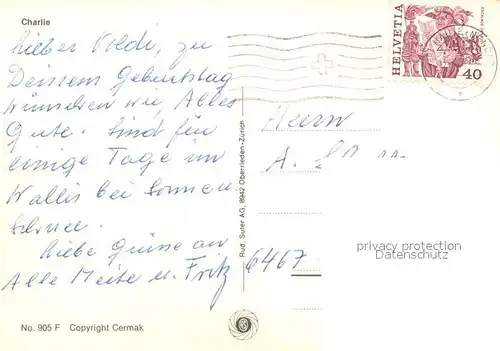 Charlie
Lieber Poldi, zu
Deinem Geburtstag
wünschen wir Alles
Gute. Sind für
einige Tage im
Wallis bei Sonne u.
Schnee.
Liebe Grüsse an
Alle Meite u. Fritz
No. 905 F Copyright Cermak
Rud. Suter AG, 8942 Oberrieden-Zürich
HELVETIA
40
Herrn
A.
6467
privacy protection
Datenschutz